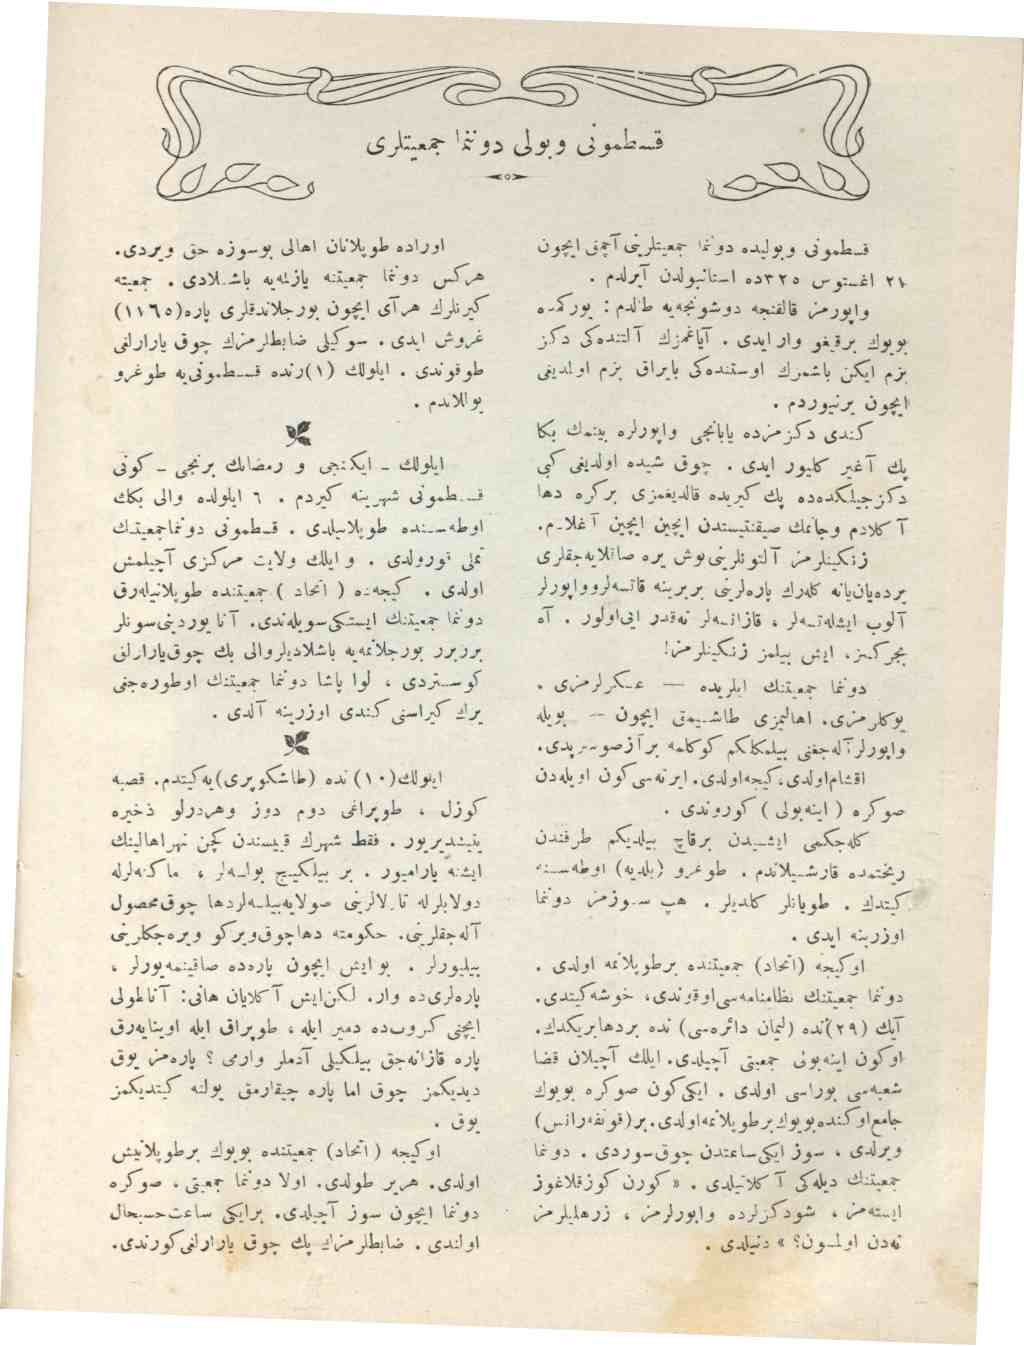 قسطمونی وبولی دوننما جمعیتلری
قسطمونی وبولیده دوننما جمعیتلرینی آچمق ایچون
٢١ اغستوس ٣٢٥ده استانبولدن آیرلدم .
واپورمز قالقنجه دوشونجه‌یه طالدم : یورکمده
بویوك برقیغو وار ایدی . آیاغمزك آلتنده‌کی دکز
بزم ایکن باشمزك اوستنده‌کی بایراق بزم اولمدیغی
ایچون یرنیوردم .
کندی دکزمزده یابانجی واپورلره بینمك بکا
پك آغیر کلیور ایدی . چوق شیده اولدیغی کبی
دکزجیلکده‌ده پك کیریده قالدیغمزی برکره دها
آکلادم وجانمك صیقنتیسندن ایچین ایچین آغلادم.
زنکینلرمز آلتونلرینی بوش یره صاقلایه‌جقلری
یرده یان یانه کله‌رك پاره‌لرینی بربرینه قاتسه‌لر و واپورلر
آلوب ایشلتسه‌لر ، قازانسه‌لر نه‌قدر ایی اولور . آه
بجرکسز، ایش بیلمز زنکینلرمز!
دوننما جمعیتنك ایلریده — عسکرلرمزی .
یوکلرمزی. اهالیمزی طاشیمق ایچون — بویله
واپورلر آله‌جغنی بیلمکلکم کوکلمه بر آز صو سرپدی.
اقشام اولدی، کیجه اولدی. ایرته‌سی کون اویله‌دن
صوکره ( اینه‌بولی ) کوروندی .
کله‌جکمی ایشیدن برقاچ بیلدیکم طرفندن
ریختمده قارشیلاندم . طوغرو (بلدیه) اوطه‌سنه
کیتدك . طویانلر کلدیلر . هپ سوزمز دوننما
اوزرینه ایدی .
اوکیجه (اتحاد) جمعیتنده برطوپلانمه اولدی .
دوننما جمعیتنك نظامنامه‌سی اوقوندی، خوشه کیتدی.
آیك (٢٩)نده (لیمان دائره‌سی) نده بردها بریکدك.
اوکون اینه‌بولی جمعیتی آچیلدی. ایلك آچیلان قضا
شعبه‌سی بوراسی اولدی . ایکی کون صوکره بویوك
جامع اوکنده بویوك برطوپلانمه اولدی. بر (قونفه‌رانس)
ویرلدی ، سوز ایکی ساعتدن چوق سوردی . دوننما
جمعیتنك دیله‌کی آکلاتیلدی . « کورن کوز قلاغوز
ایسته‌مز ، شو دکزلرده واپورلرمز ، زرهلیلرمز
نه‌دن اولمسون؟ » دنیلدی .
اوراده طوپلانان اهالی بوسوزه حق ویردی.
هرکس دوننما جمعیتنه یازلمه‌یه باشلادی . جمعیته
کیرنلرك هرآی ایچون بورجلاندقلری پاره(١١٦٥)
غروش ایدی . سوکیلی ضابطلرمزك چوق یارارلغی
طوقوندی . ایلولك (١)رنده قسطمونی‌یه طوغرو
یوللاندم .
ایلولك ـ ایکنجی و رمضانك برنجی ـ کونی
قسطمونی شهرینه کیردم . ٦ ایلولده والی بکك
اوطه‌سنده طوپلانیلدی . قسطمونی دوننما جمعیتنك
تملی قورولدی . و ایلك ولایت مرکزی آچیلمش
اولدی . کیجه‌ده ( اتحاد ) جمعیتنده طوپلانیله‌رق
دوننما جمعیتنك ایستکی سویلندی. آنا یوردینی سونلر
بربرر بورجلانمه‌یه باشلادیلر والی بك چوق یارارلغی
کوستردی ، لوا پاشا دوننما جمعیتنك اوطوره‌جغی
یرك کیراسنی کندی اوزرینه آلدی .
ایلولك (١٠) نده (طاشکوپری)یه کیتدم. قصبه
کوزل ، طوپراغی دوم دوز وهردرلو ذخیره
یتیشدیریور . فقط شهرك قییسندن کچن نهر اهالینك
ایشنه یارامیور . بر بیلکیچ بولسه‌لر ، ماکنه‌لرله
دولابلرله تارلالرینی صولایه‌بیلسه‌لر دها چوق محصول
آله‌جقلرینی. حکومته دها چوق ویرکو ویره‌جکلرینی
بیلیورلر . بو ایش ایچون پاره‌ده صاقینمه‌یورلر ،
پاره‌لری‌ده وار. لکن ایش آکلایان هانی: آناطولی
ایچنی کزوب‌ده دمیر ایله ، طوپراق ایله اوینایه‌رق
پاره قازانه‌جق بیلکیلی آدملر وارمی ؟ پاره‌مز یوق
دیدیکمز چوق اما پاره چیقارمق یولنه کیتدیکمز
یوق .
اوکیجه (اتحاد) جمعیتنده بویوك برطوپلانیش
اولدی. هریر طولدی. اولا دوننما جمعیتی ، صوکره
دوننما ایچون سوز آچیلدی. برایکی ساعت حسبحال
اولندی . ضابطلرمزك پك چوق یارارلغی کورندی.